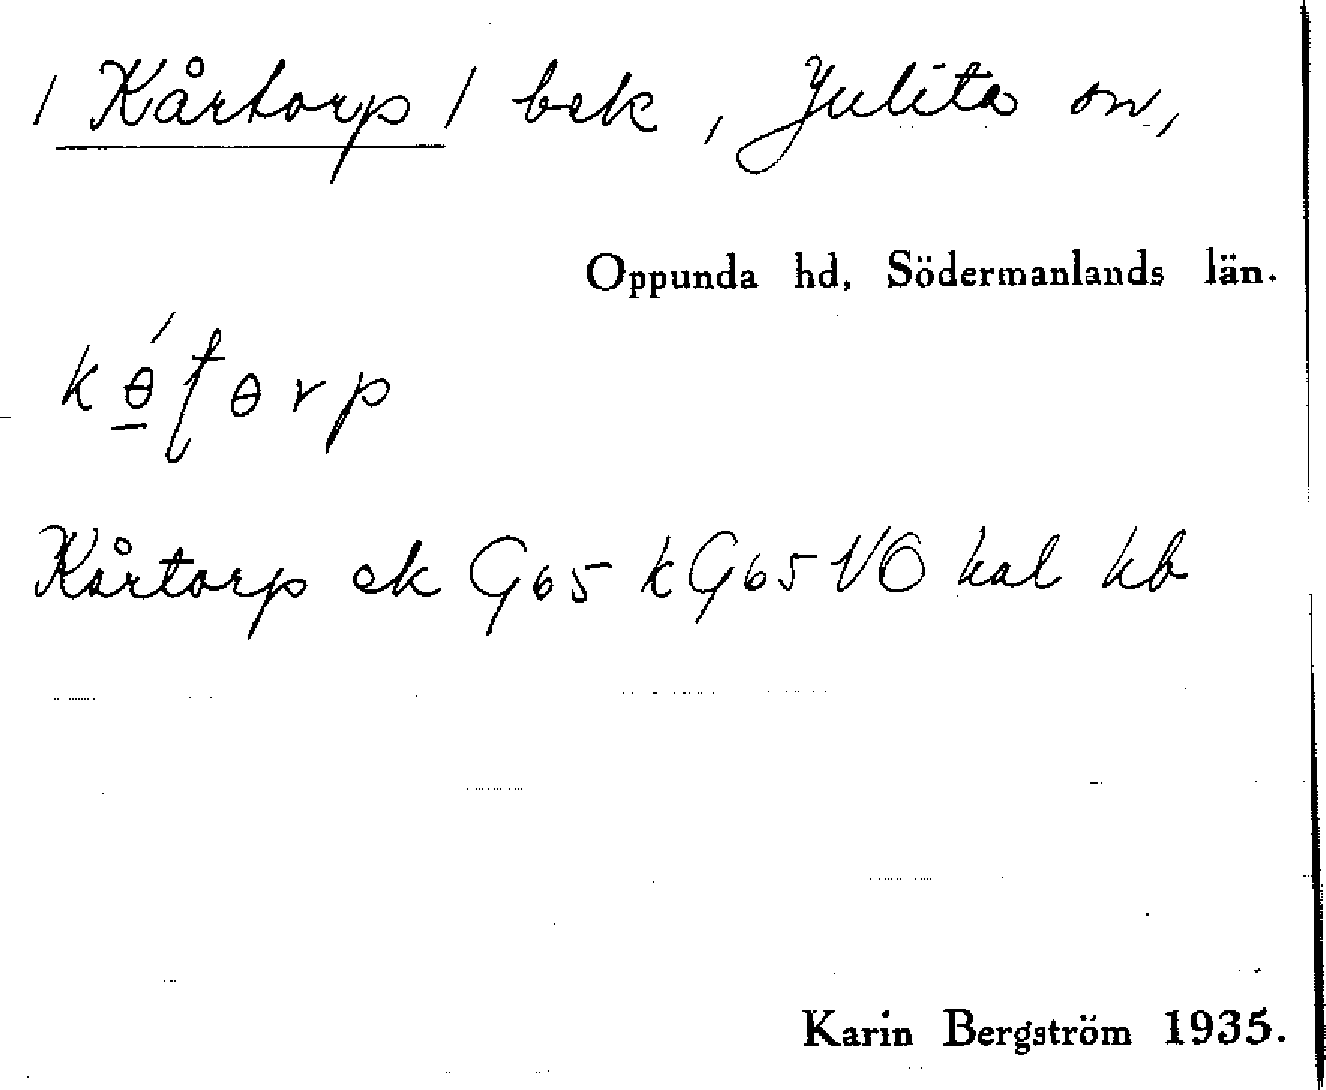 / Kårtorp / bek, Julita sn,
Oppunda hd, Södermanlands län.
kɵ́ʈɵrp
Kårtorp ek G65 kG65 VO hal kb
Karin Bergström 1935.